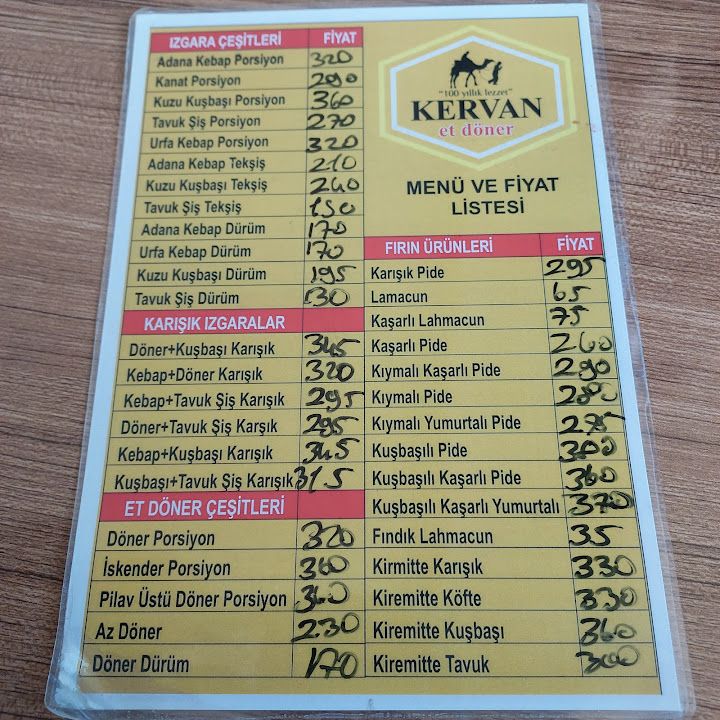 IZGARA ÇEŞİTLERİ FİYAT
Adana Kebap Porsiyon 320
Kanat Porsiyon 290
Kuzu Kuşbaşı Porsiyon 360
Tavuk Şiş Porsiyon 270
Urfa Kebap Porsiyon 320
Adana Kebap Tekşiş 210
Kuzu Kuşbaşı Tekşiş 240
Tavuk Şiş Tekşiş 150
Adana Kebap Dürüm 170
Urfa Kebap Dürüm 170
Kuzu Kuşbaşı Dürüm 195
Tavuk Şiş Dürüm 130
KARIŞIK IZGARALAR
Döner+Kuşbaşı Karışık 345
Kebap+Döner Karışık 320
Kebap+Tavuk Şiş Karışık 295
Döner+Tavuk Şiş Karışık 295
Kebap+Kuşbaşı Karışık 345
Kuşbaşı+Tavuk Şiş Karışık 315
ET DÖNER ÇEŞİTLERİ
Döner Porsiyon 320
İskender Porsiyon 360
Pilav Üstü Döner Porsiyon 340
Az Döner 230
Döner Dürüm 170
"100 yıllık lezzet"
KERVAN
et döner
MENÜ VE FİYAT
LİSTESİ
FIRIN ÜRÜNLERİ FİYAT
Karışık Pide 295
Lamacun 65
Kaşarlı Lahmacun 75
Kaşarlı Pide 260
Kıymalı Kaşarlı Pide 290
Kıymalı Pide 280
Kıymalı Yumurtalı Pide
Kuşbaşılı Pide
Kuşbaşılı Kaşarlı Pide 360
Kuşbaşılı Kaşarlı Yumurtalı 370
Fındık Lahmacun 35
Kirmitte Karışık 330
Kiremitte Köfte 330
Kiremitte Kuşbaşı 360
Kiremitte Tavuk 300